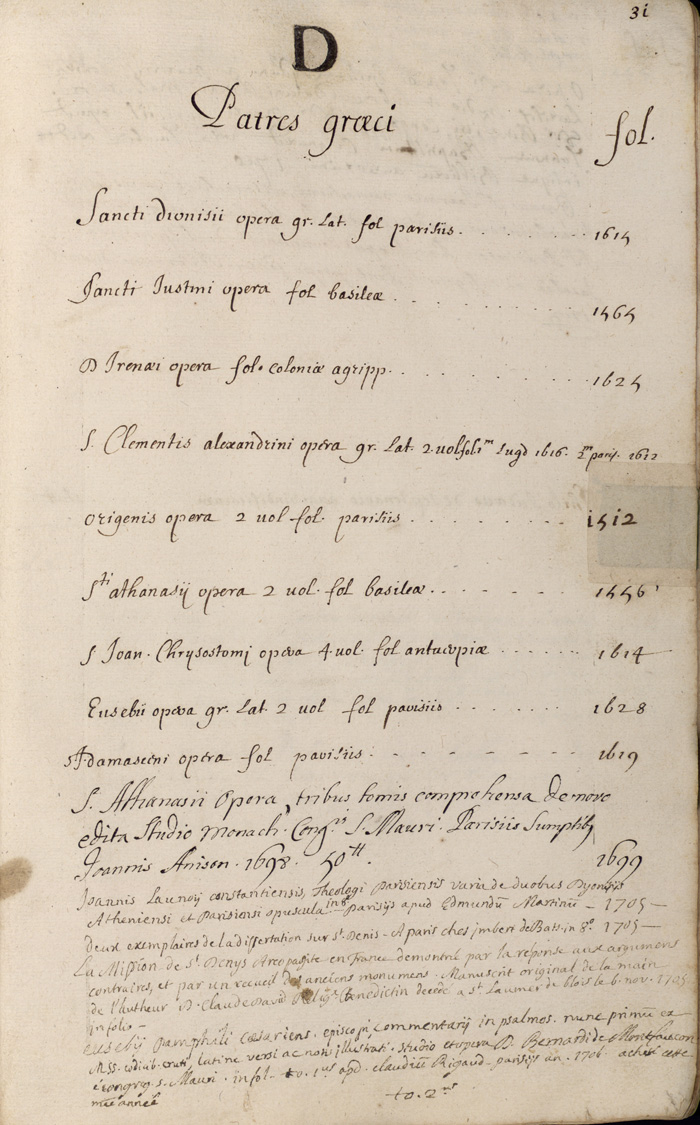 31
D
Patres græci
fol.
Sancti dionisii opera gr. Lat. fol parisiis. . . . . . . . 1615
Sancti Iustini opera fol basileæ . . . . . . . . 1565
D Irenæi opera fol. coloniæ agripp. . . . . . . . 1625
S. Clementis alexandrini opera gr. Lat. 2 vol fol 1m Lugd 1616. 2m paris. 1612
origenis opera 2 vol fol. parisiis . . . . . . . 1512
Sti athanasij opera 2 vol. fol basileæ . . . . . . 1556
S Joan. Chrysostomj opera 4. vol. fol antuerpiæ . . . . . . 1614
Eusebii opera gr. Lat 2 vol fol parisiis . . . . . . 1628
damasceni opera fol parisiis . . . . . 1619
S. Athanasii Opera, tribus tomis comprehensa de novo
edita Studio Monach. Cong.s S. Mauri. Parisiis Sumptib
Joannis Anison. 1698. 50tt. 1699
Joannis Launoij constantiensis, Theologi Parisiensis varia de duobus Dyonisijs
Atheniensi et Parisiensi opuscula in 8º Parisijs apud Edmundū Martinū – 1705 –
deux exemplaires de la dissertation sur st Denis – A paris ches jmbert de Bats. in 8º. 1705 –
La Mission de st. Denys Areopagite en france demontré par la réponse aux argumens
contraires, et par un recueil des anciens monumens. Manuscrit original de la main
de l'autheur D. Claude David Relig. Benedictin decedé a st Laumer de blois le 6. nov. 1705
in folio –
eusebij pamphili cæsariens. episcopi, commentarij in psalmos. nunc primū ex
Mss. codicib. eruti, latine versi ac notis illustrati. studio et opera D. Bernardi de Montfaucon
e congreg. s. Mauri. in fol. to. 1us apd. claudiū Rigaud – parisijs an. 1706 achet cette
même année to. 2us